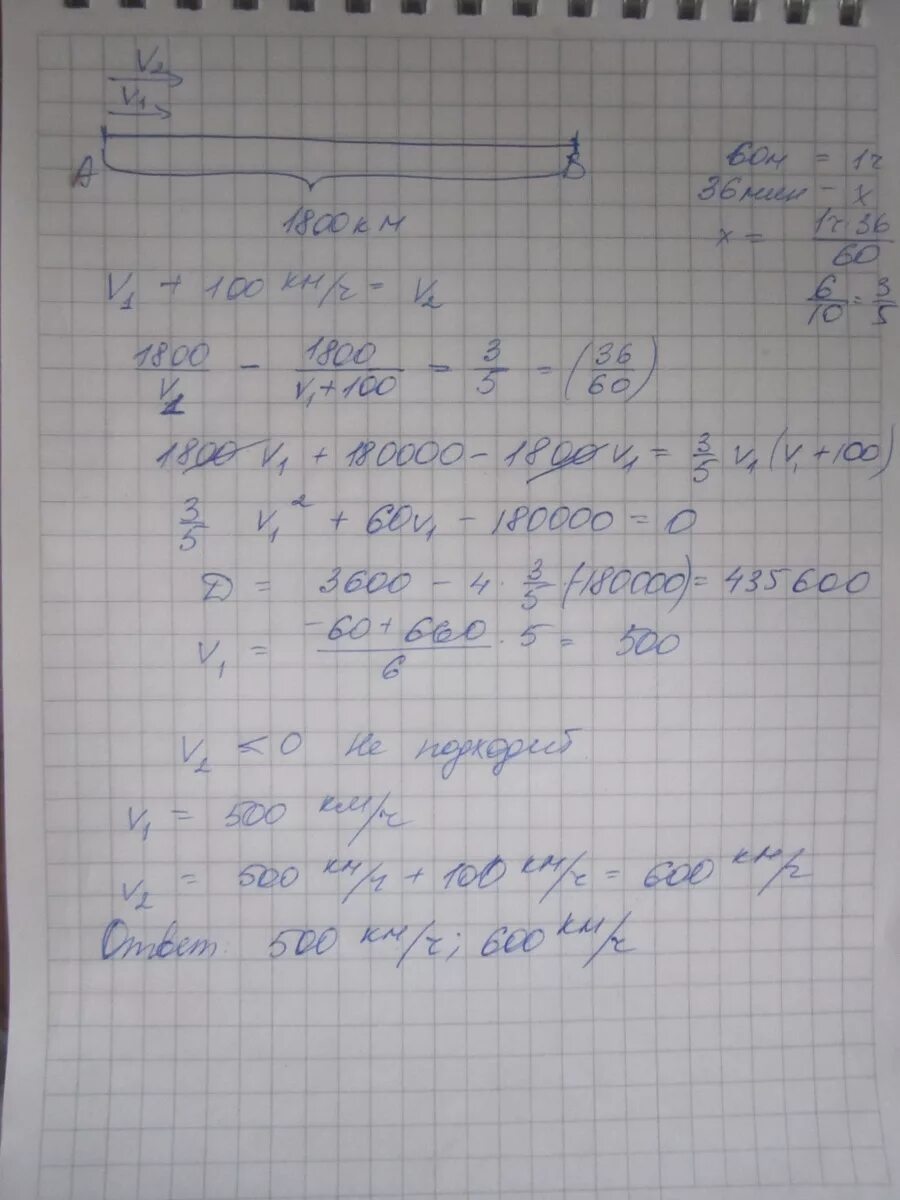 V₂
V₁
A B
1800 км
60м = 1ч
36мин - x
x = 1ч·36/60
6/10 = 3/5
V₁ + 100 км/ч = V₂
1800/V₁ - 1800/(V₁+100) = 3/5 = (36/60)
1800 V₁ + 180000 - 1800 V₁ = 3/5 V₁ (V₁ + 100)
3/5 V₁² + 60V₁ - 180000 = 0
Д = 3600 - 4 · 3/5 · (-180000) = 435600
V₁ = (-60 + 660)/6 · 5 = 500
V₂ < 0 Не подходит
V₁ = 500 км/ч
V₂ = 500 км/ч + 100 км/ч = 600 км/ч
Ответ: 500 км/ч; 600 км/ч